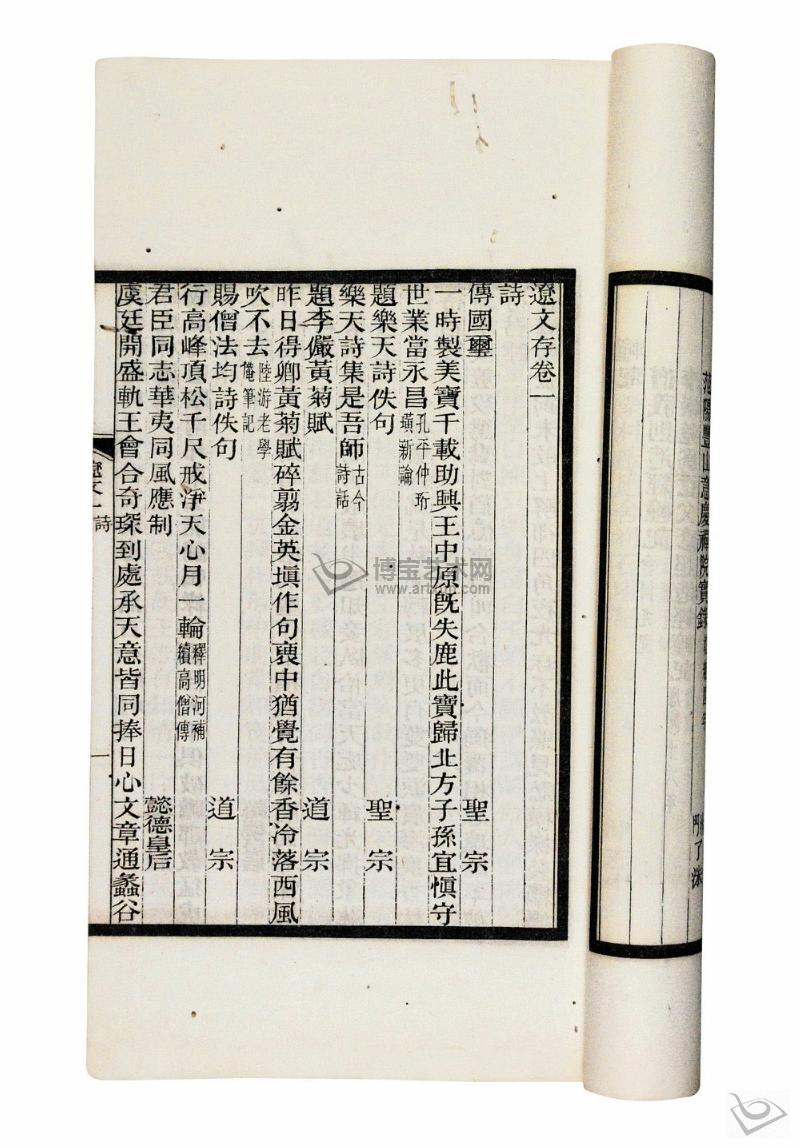 遼文存卷一
詩
傳國璽　聖宗
一時製美寶千載助興王中原旣失鹿此寶歸北方子孫宜愼守
世業當永昌孔平仲珩璜新論
題樂天詩佚句　聖宗
樂天詩集是吾師古今詩話
題李儼黃菊賦　道宗
昨日得卿黃菊賦碎翦金英塡作句裛中猶覺有餘香冷落西風
吹不去陸游老學菴筆記
賜僧法均詩佚句　道宗
行高峰頂松千尺戒淨天心月一輪釋明河補續高僧傳
君臣同志華夷同風應制　懿德皇后
虞廷開盛軌王會合奇琛到處承天意皆同捧日心文章通蠡谷
遼文一　詩
一
山意慶禪院實錄
博宝艺术网
www.artxun.com